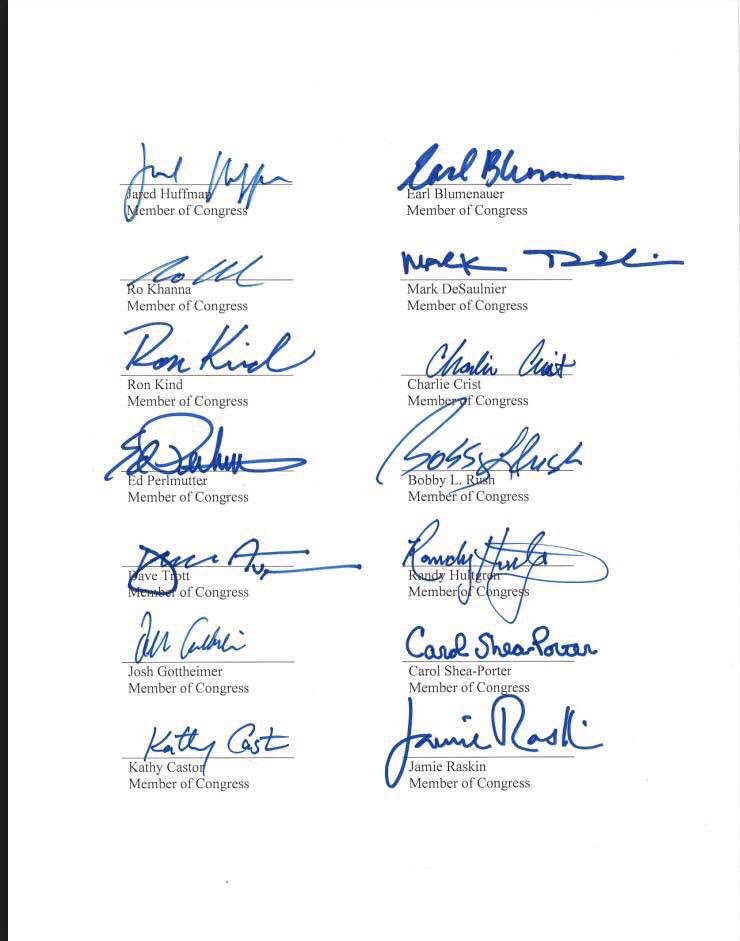 Jared Huffman
Member of Congress
Earl Blumenauer
Member of Congress
Ro Khanna
Member of Congress
Mark DeSaulnier
Member of Congress
Ron Kind
Ron Kind
Member of Congress
Charlie Crist
Charlie Crist
Member of Congress
Ed Perlmutter
Member of Congress
Bobby L Rush
Bobby L. Rush
Member of Congress
Dave Trott
Member of Congress
Randy Hultgren
Member of Congress
Josh Gottheimer
Member of Congress
Carol Shea-Porter
Carol Shea-Porter
Member of Congress
Kathy Cast
Kathy Castor
Member of Congress
Jamie Raskin
Jamie Raskin
Member of Congress